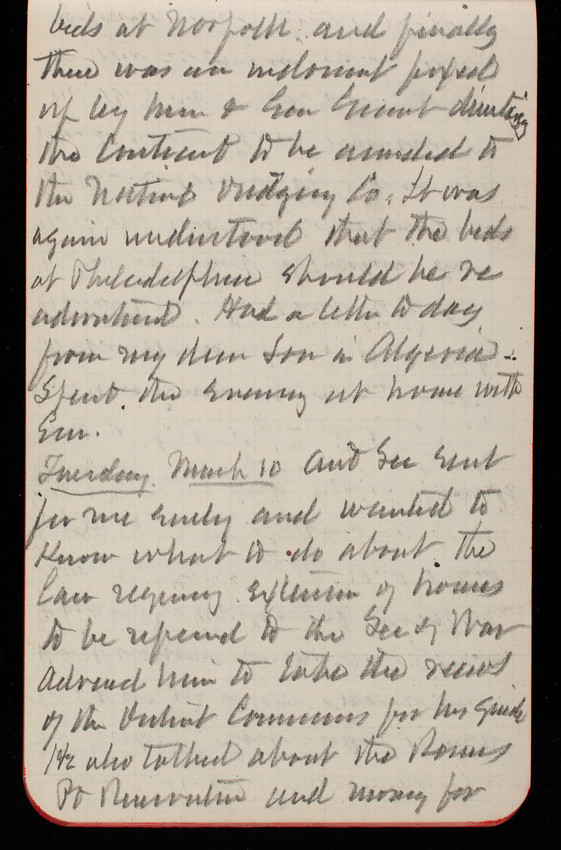 beds at Norfolk and finally
there was an indorsmt
up by him & Gen Grant directing
the Contract to be awarded to
the National Dredging Co. It was
again understood that the beds
at Philadelphia should be re
advertised. Had a letter to day
from my dear Son in Algeria -
Spent the evening at home with
Em.
Tuesday March 10 Asst Sec sent
for me early and wanted to
know what to do about the
law requiring extension of
to be referred to the Sec of War
Advised him to take the views
of the District Commrs for his guide
He also talked about the
Pt Reservation and money for